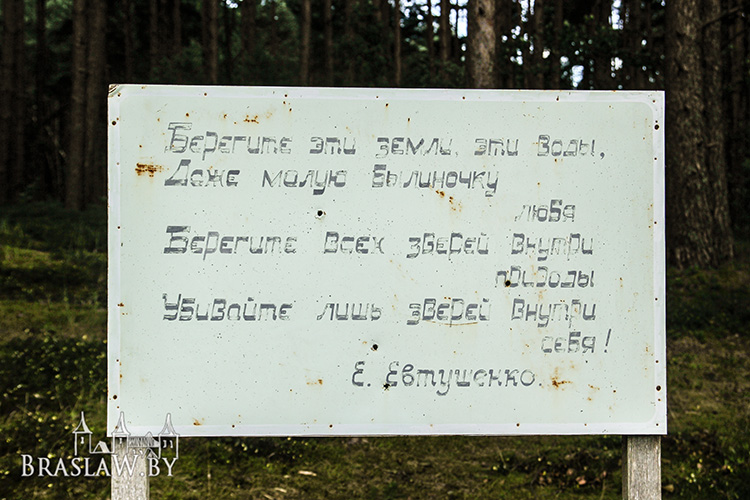 Берегите эти земли, эти воды,
Даже малую былиночку
любя
Берегите всех зверей внутри
природы
Убивайте лишь зверей внутри
себя!
Е. Евтушенко.
BRASLAW.BY